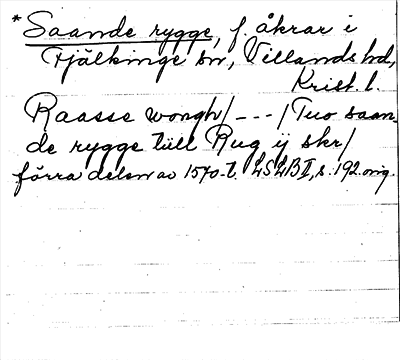 *Saande rygge, f. åkrar i
Fjälkinge sn, Villands hd,
Krist. l.
Raasse wongh/ --- / Tuo saan-
de rygge till Rug ij skr/
förra delen av 1570-t. LSLB II, s. 192. orig.